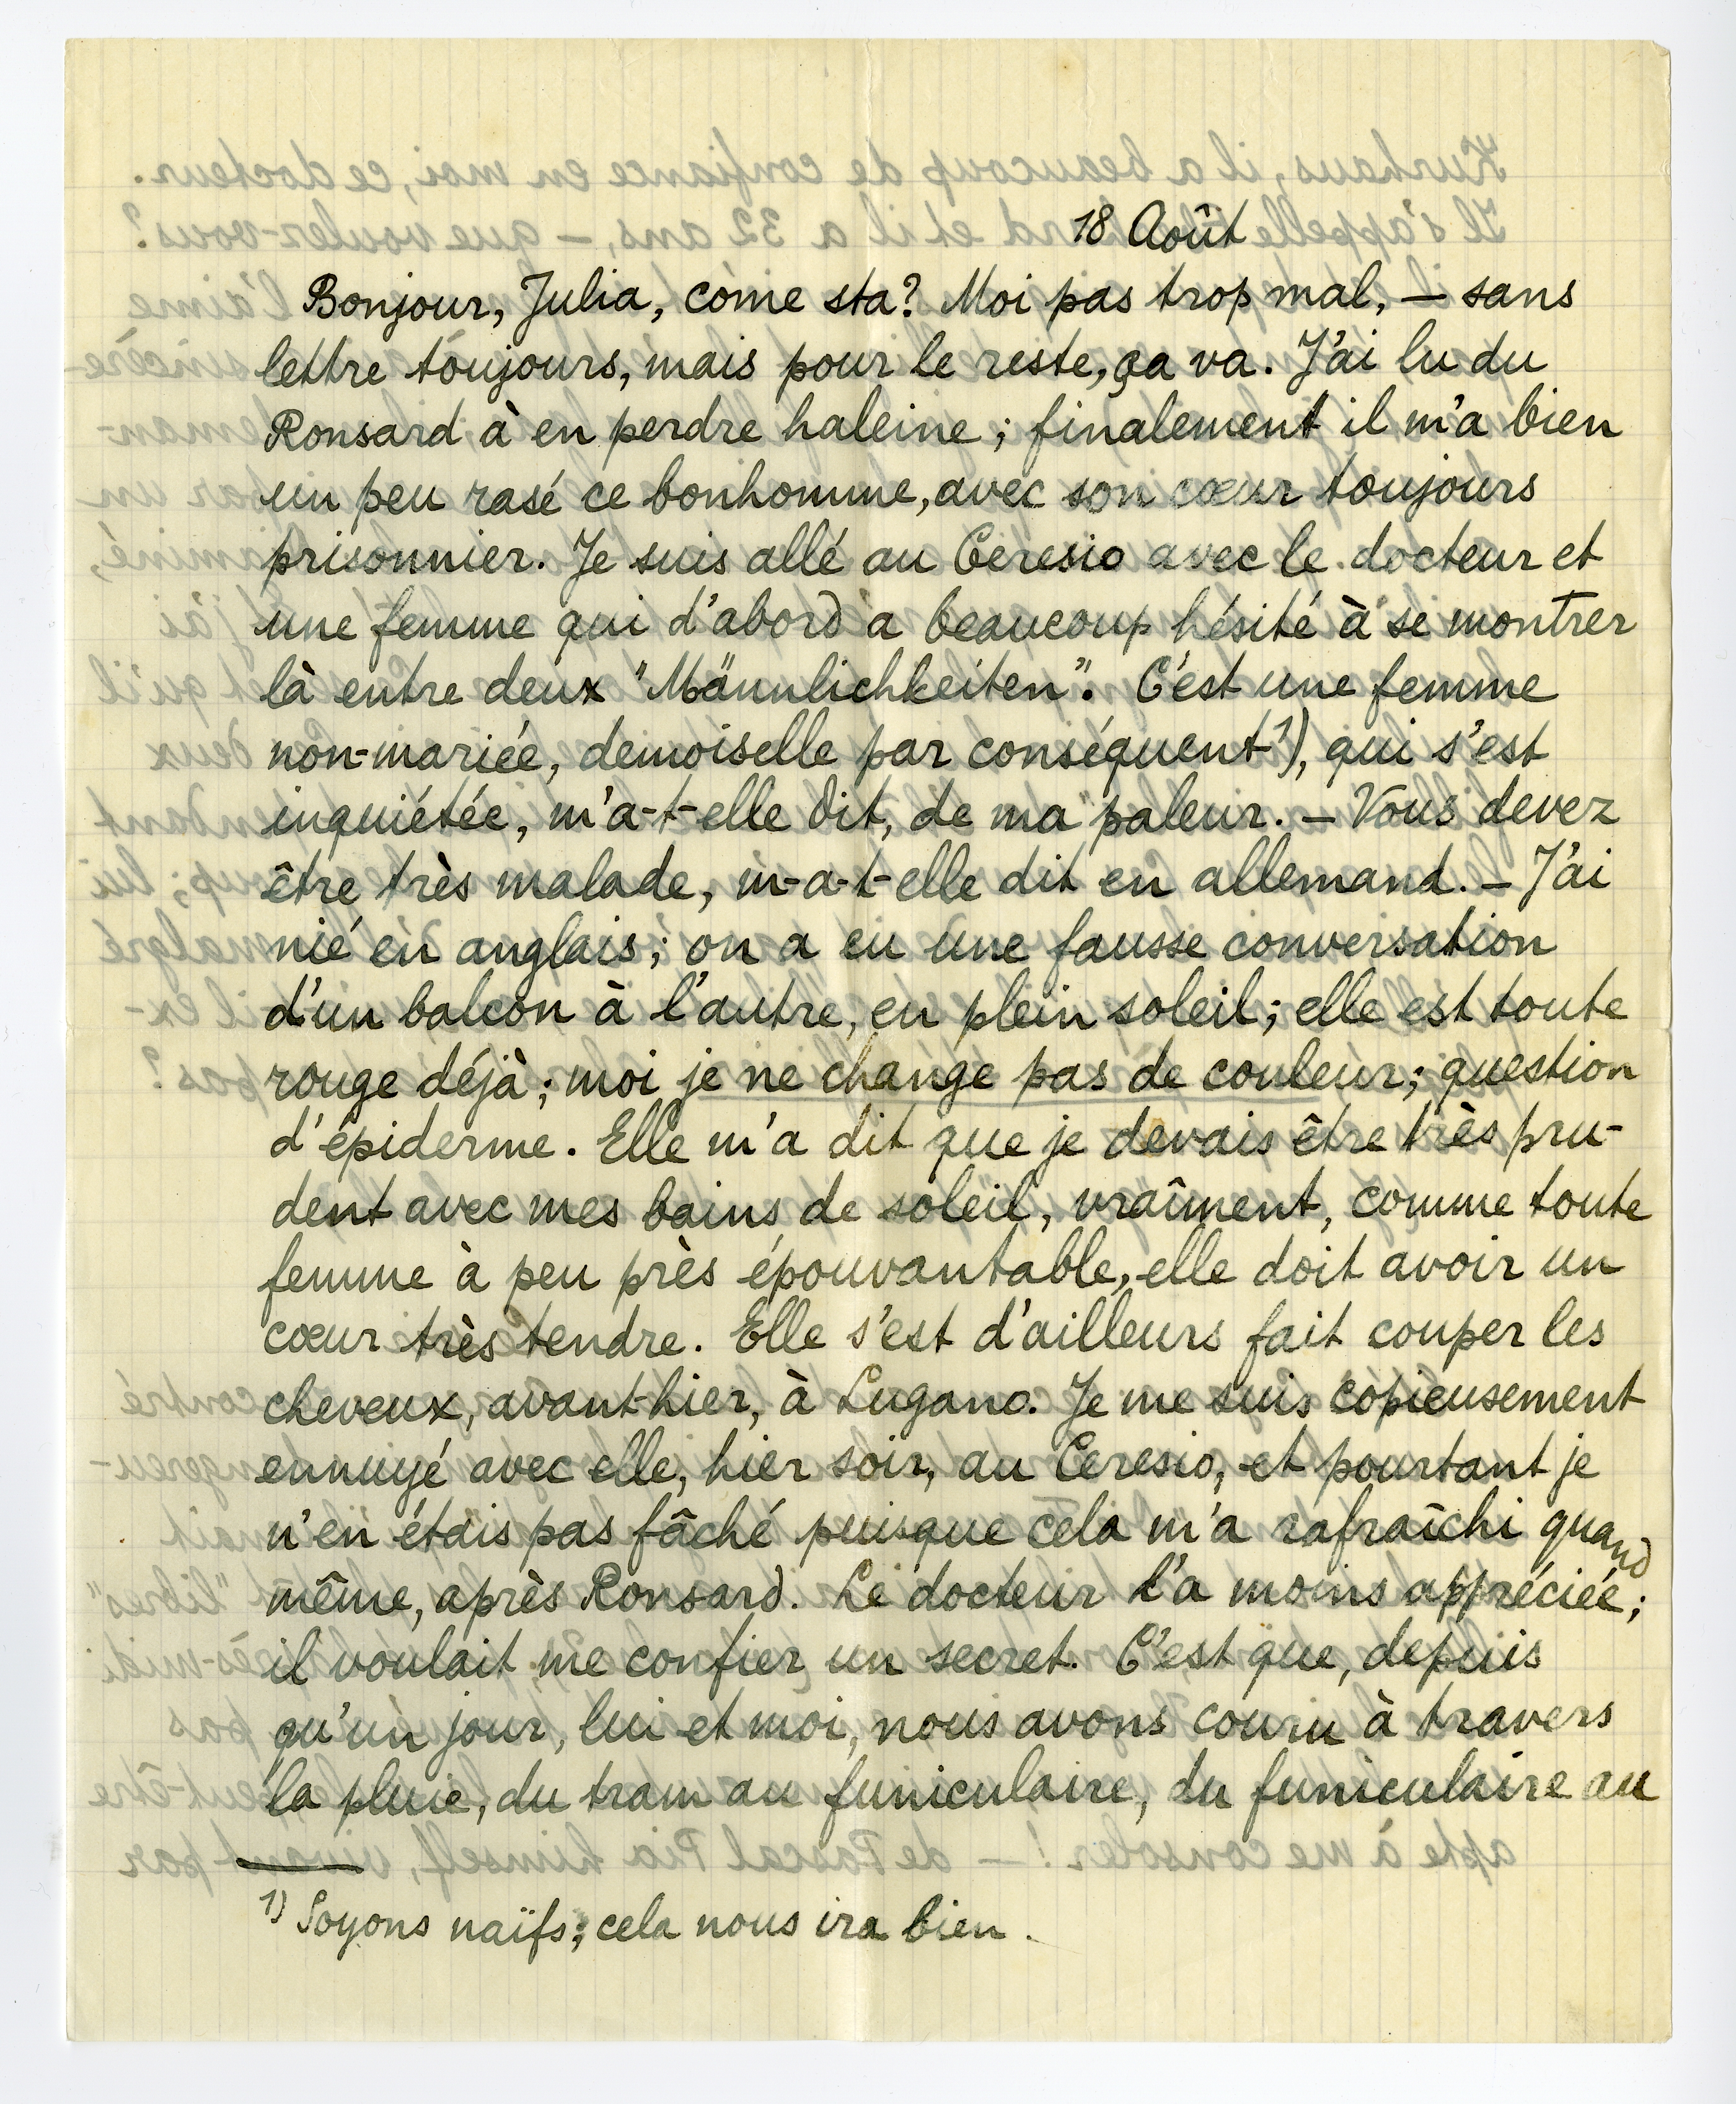 18 Août
Bonjour, Julia, come sta? Moi pas trop mal, — sans
lettre toujours, mais pour le reste, ça va. J'ai lu du
Ronsard à en perdre haleine; finalement il m'a bien
un peu rasé ce bonhomme, avec son cœur toujours
prisonnier. Je suis allé au Ceresio avec le docteur et
une femme qui d'abord a beaucoup hésité à se montrer
là entre deux "Männlichkeiten". C'est une femme
non-mariée, demoiselle par conséquent ¹), qui s'est
inquiétée, m'a-t-elle dit, de ma paleur. — Vous devez
être très malade, m-a-t-elle dit en allemand. — J'ai
nié en anglais; on a eu une fausse conversation
d'un balcon à l'autre, en plein soleil; elle est toute
rouge déjà; moi je ne change pas de couleur; question
d'épiderme. Elle m'a dit que je devais être très pru-
dent avec mes bains de soleil, vraîment, comme toute
femme à peu près épouvantable, elle doit avoir un
cœur très tendre. Elle s'est d'ailleurs fait couper les
cheveux, avant-hier, à Lugano. Je me suis copieusement
ennuyé avec elle, hier soir, au Ceresio, et pourtant je
n'en étais pas fâché puisque cela m'a rafraîchi quand
même, après Ronsard. Le docteur l'a moins appréciée;
il voulait me confier un secret. C'est que, depuis
qu'un jour, lui et moi, nous avons couru à travers
la pluie, du tram au funiculaire, du funiculaire au
¹) Soyons naïfs; cela nous ira bien.